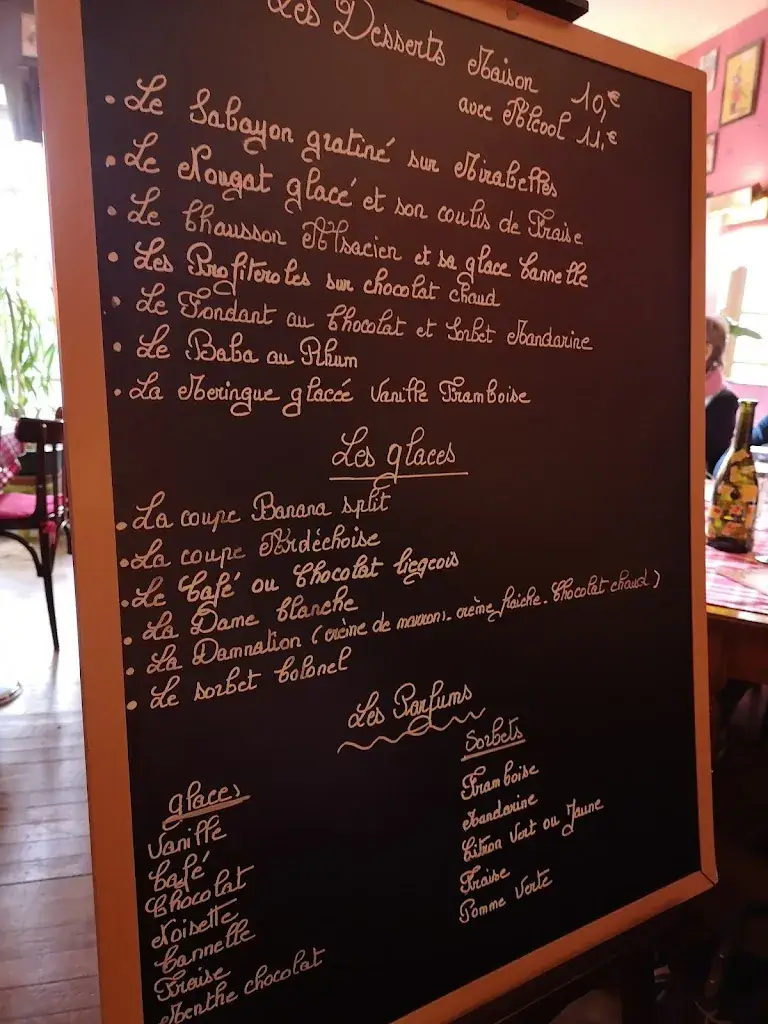 Les Desserts Maison 10,€
avec Alcool 11,€
• Le Sabayon gratiné sur Mirabelles
• Le Nougat glacé et son coulis de Fraise
• Le Chausson Alsacien et sa glace Cannelle
• Les Profiteroles sur chocolat chaud
• Le Fondant au Chocolat et Sorbet Mandarine
• Le Baba au Rhum
• La Meringue glacée Vanille Framboise
Les glaces
• La coupe Banana split
• La coupe Ardéchoise
• Le Café ou Chocolat liegeois
• La Dame blanche
• La Damnation (crème de marrons - crème fraiche - Chocolat chaud)
• Le sorbet Colonel
Les Parfums
glaces
Vanille
Café
Chocolat
Noisette
Cannelle
Fraise
Menthe chocolat
Sorbets
Framboise
Mandarine
Citron Vert ou Jaune
Fraise
Pomme Verte